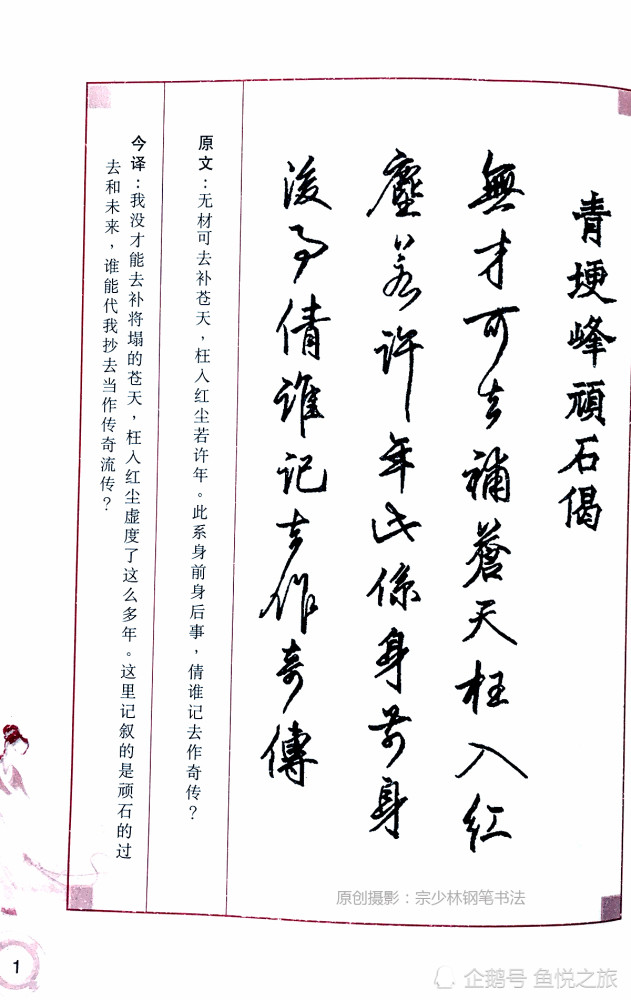 青埂峰頑石偈
無才可去補蒼天枉入紅
塵若許年此係身前身
後事倩誰記去作奇傳
原文：无材可去补苍天，枉入红尘若许年。此系身前身后事，倩谁记去作奇传？
今译：我没才能去补将塌的苍天，枉入红尘虚度了这么多年。这里记叙的是顽石的过
去和未来，谁能代我抄去当作传奇流传？
原创摄影：宗少林钢笔书法
1
企鹅号 鱼悦之旅